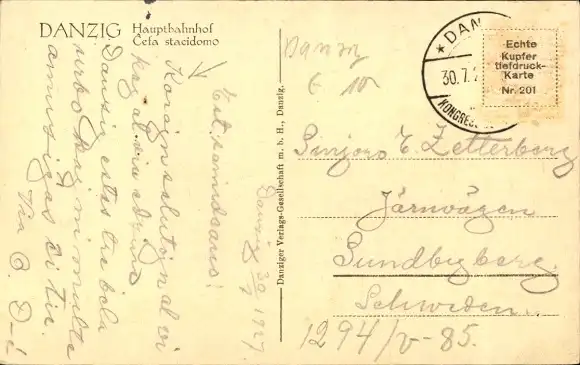 DANZIG Hauptbahnhof
Ĉefa stacidomo
Danzig 30/7 1927.
Est. samideano!
Korajn salutojn al vi
kaj al via edzino
Danzig estas tre bela
urbo kaj mi multe
amuziĝas ĉi tie.
Via C. D-i
Danziger Verlags-Gesellschaft m. b. H., Danzig.
Danzig
€ 10
DAN
30.7.2
KONGRES
Echte
Kupfer
tiefdruck-
Karte
Nr. 201
Sinjoro E. Zetterberg
Järnvägen
Sundbyberg
Schweden
1294/V-85.